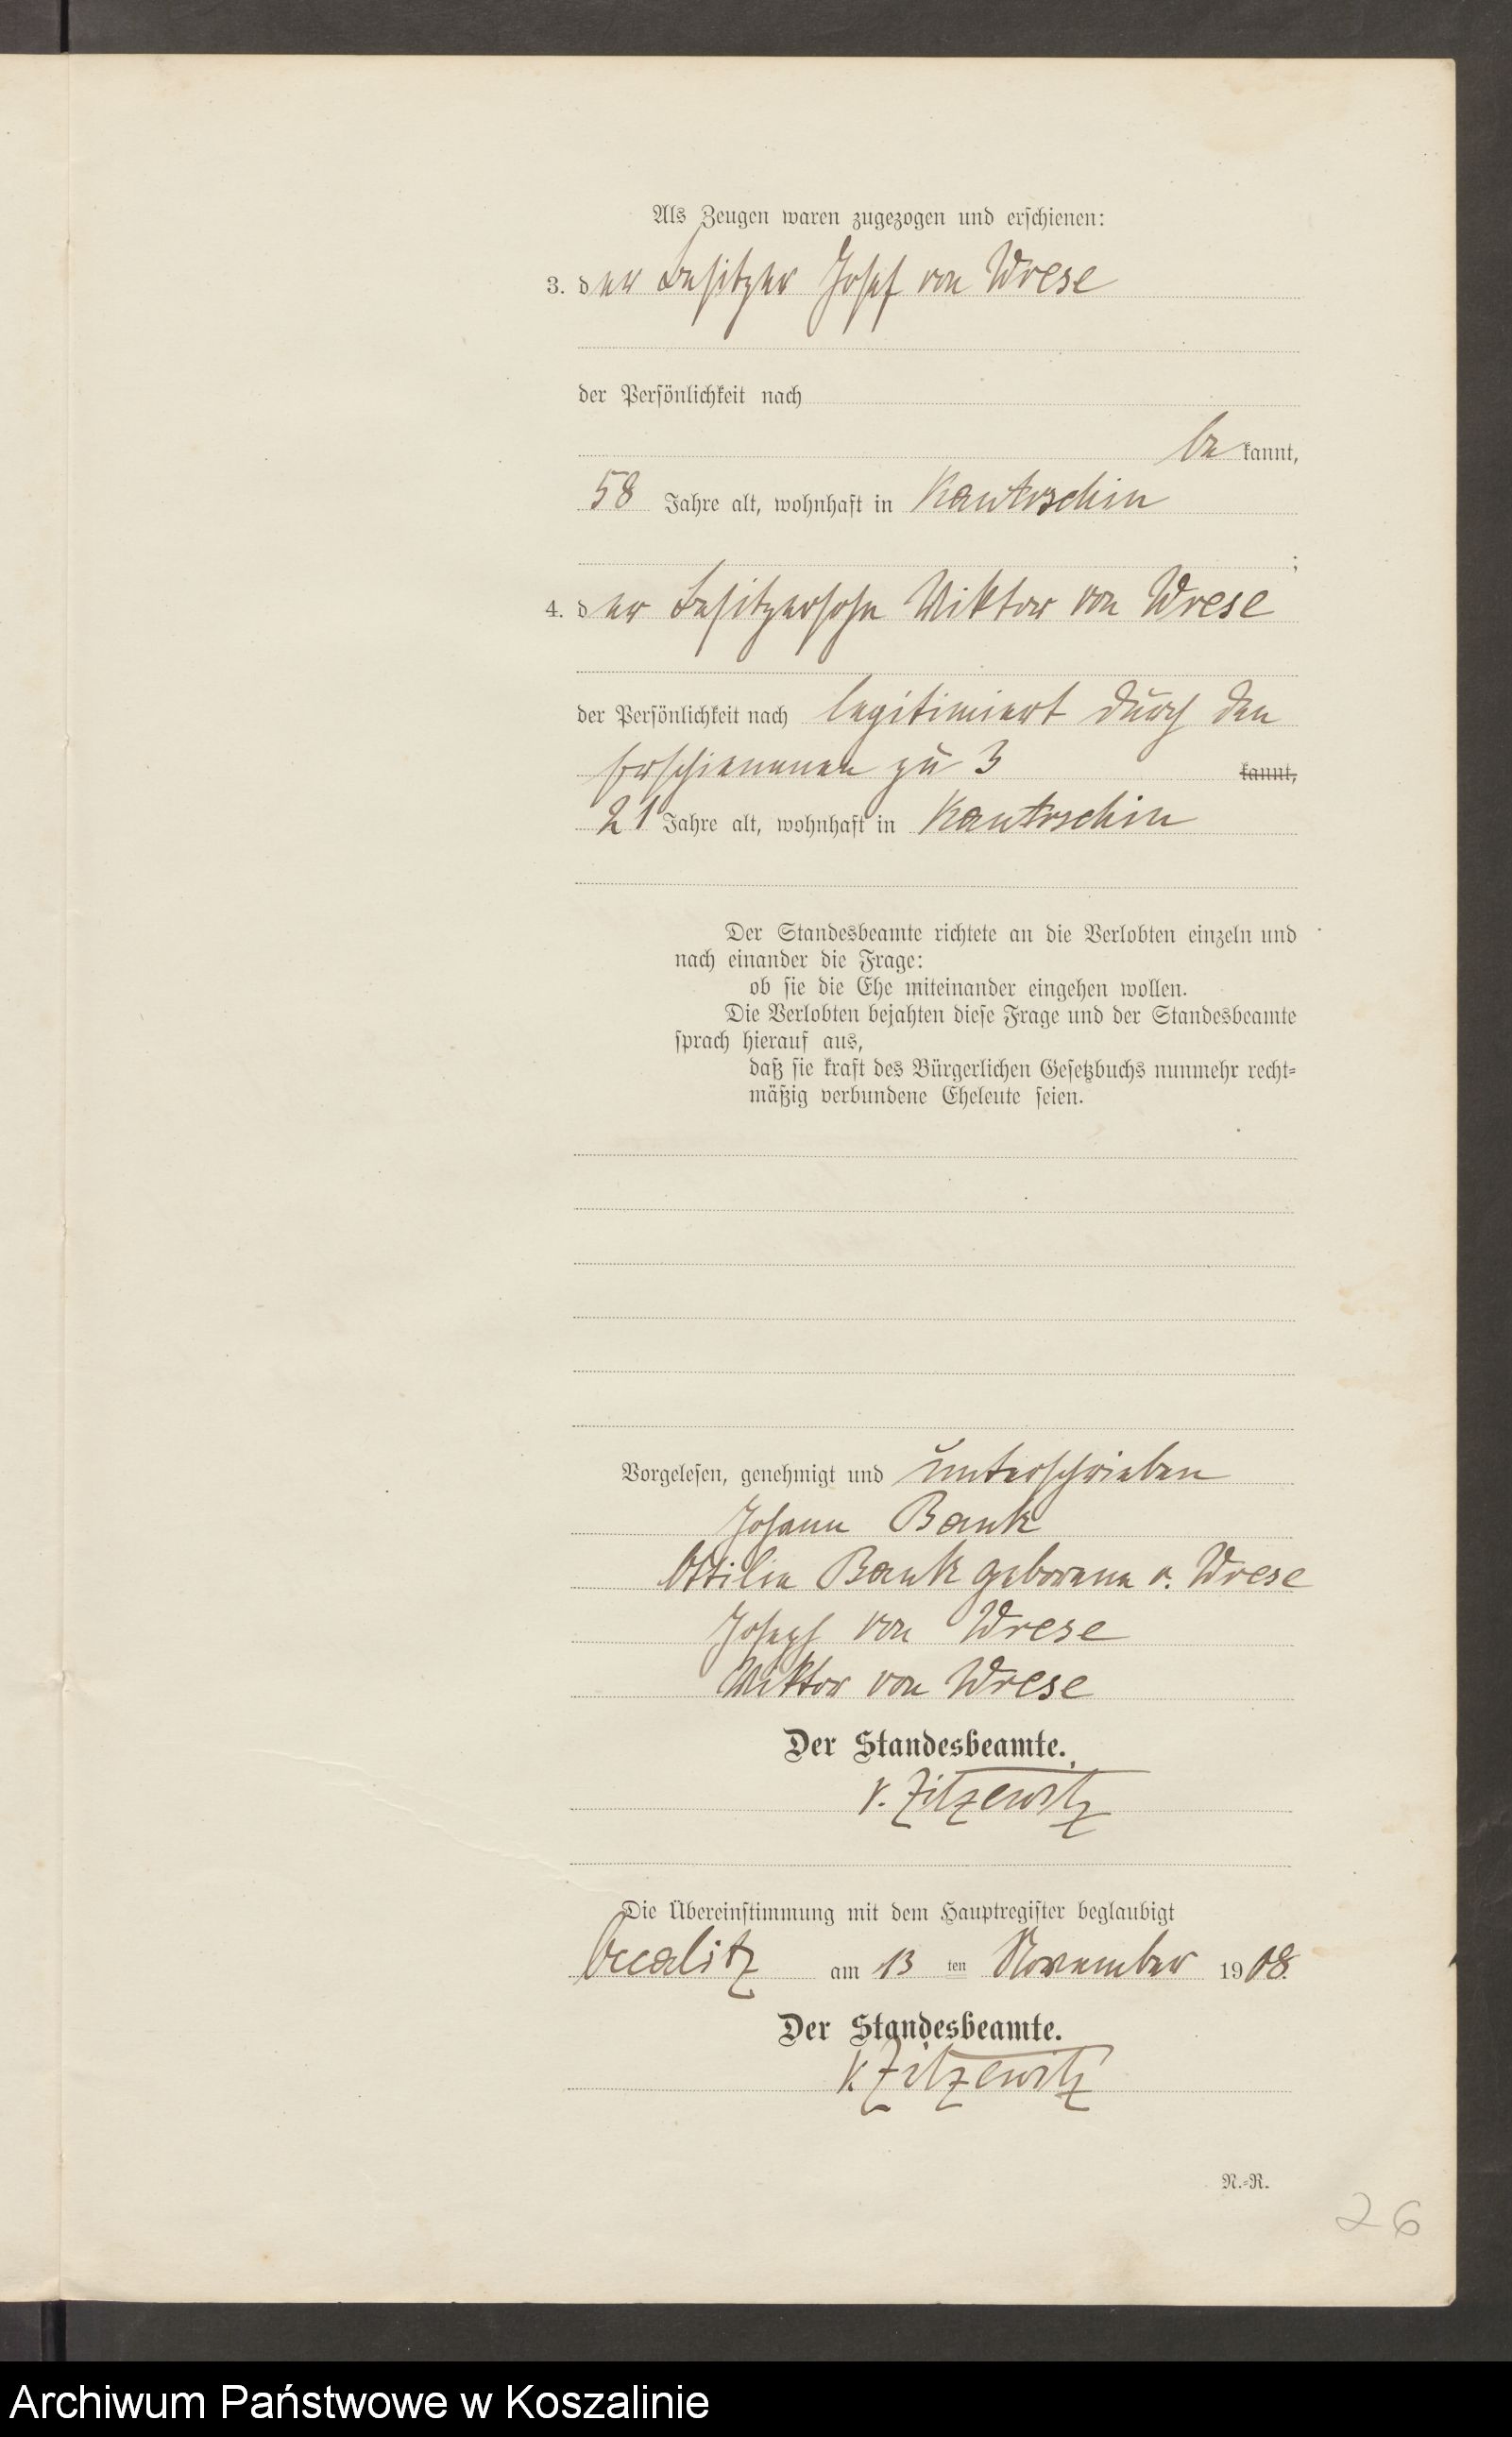 Als Zeugen waren zugezogen und erschienen:
3. der Besitzer Josef von Wrese
der Persönlichkeit nach
be kannt,
58 Jahre alt, wohnhaft in Kantrschin
;
4. der Besitzersohn Wiktor von Wrese
der Persönlichkeit nach legitimiert durch den
Erschienenen zu 3 kannt,
21 Jahre alt, wohnhaft in Kantrschin
Der Standesbeamte richtete an die Verlobten einzeln und
nach einander die Frage:
ob sie die Ehe miteinander eingehen wollen.
Die Verlobten bejahten diese Frage und der Standesbeamte
sprach hierauf aus,
daß sie kraft des Bürgerlichen Gesetzbuchs nunmehr recht=
mäßig verbundene Eheleute seien.
Vorgelesen, genehmigt und unterschrieben
Johann Bank
Ottilie Bank geborene v. Wrese
Joseph von Wrese
Wiktor von Wrese
Der Standesbeamte.
v. Zitzewitz
Die Übereinstimmung mit dem Hauptregister beglaubigt
Occalitz am 13 ten November 1908.
Der Standesbeamte.
v. Zitzewitz
N.=R.
26
Archiwum Państwowe w Koszalinie